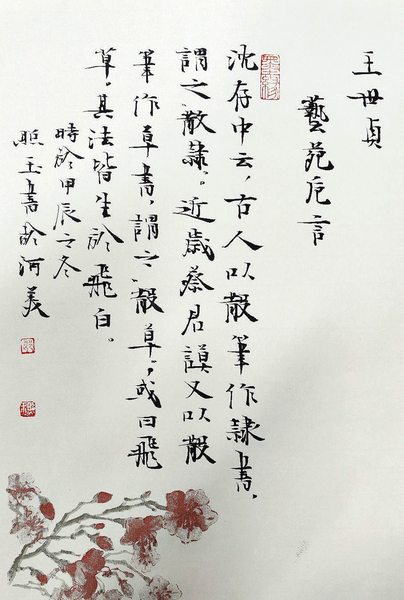 王世貞
藝苑卮言
沈存中云，古人以散筆作隸書，
謂之散隸。近歲蔡君謨又以散
筆作草書，謂之散草，或曰飛
草，其法皆生於飛白。
時於甲辰之冬
熙玉書於河美